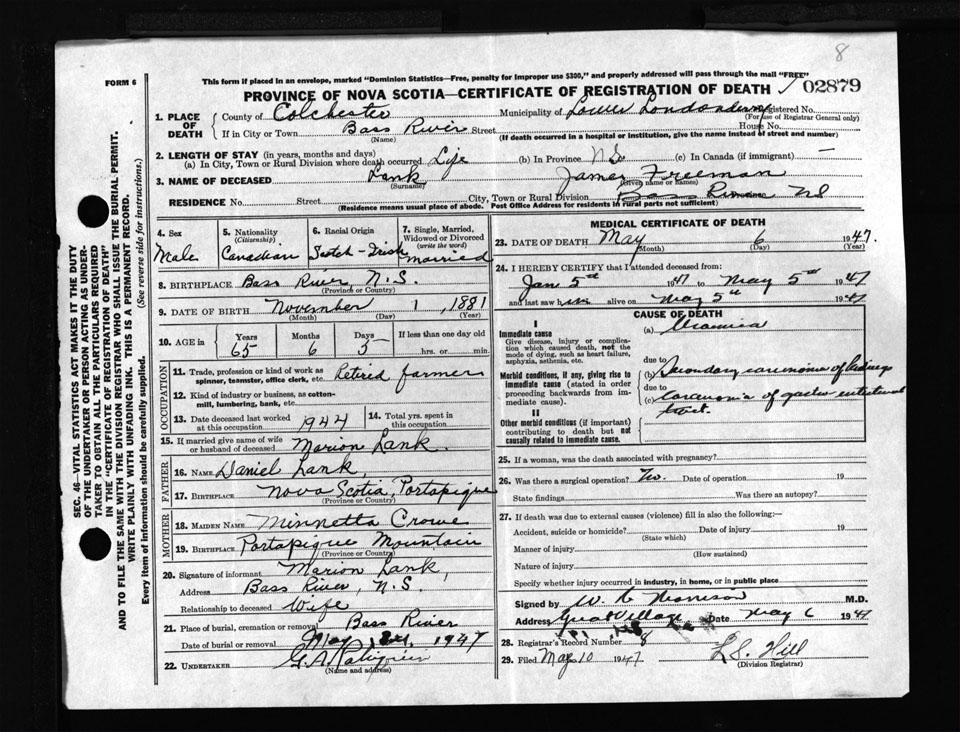 8
FORM 6
This form if placed in an envelope, marked "Dominion Statistics—Free, penalty for improper use $300," and properly addressed will pass through the mail "FREE"
PROVINCE OF NOVA SCOTIA—CERTIFICATE OF REGISTRATION OF DEATH
02879
SEC. 46—VITAL STATISTICS ACT MAKES IT THE DUTY
OF THE UNDERTAKER OR PERSON ACTING AS UNDER-
TAKER TO OBTAIN ALL THE PARTICULARS REQUIRED
IN THE "CERTIFICATE OF REGISTRATION OF DEATH"
AND TO FILE THE SAME WITH THE DIVISION REGISTRAR WHO SHALL ISSUE THE BURIAL PERMIT.
WRITE PLAINLY WITH UNFADING INK. THIS IS A PERMANENT RECORD.
Every item of information should be carefully supplied. (See reverse side for instructions.)
1. PLACE OF DEATH
County of Colchester Municipality of Lower Londonderry Registered No.
(For use of Registrar General only)
If in City or Town Bass River Street House No.
(Name) (If death occurred in a hospital or institution, give the name instead of street and number)
2. LENGTH OF STAY (in years, months and days)
(a) In City, Town or Rural Division where death occurred Life (b) In Province NS (c) In Canada (if immigrant) —
3. NAME OF DECEASED Lank James Freeman
(Surname) (Given name or names)
RESIDENCE No. Street City, Town or Rural Division Bass River NS
(Residence means usual place of abode. Post Office Address for residents in rural parts not sufficient)
4. Sex
Male
5. Nationality
(Citizenship)
Canadian
6. Racial Origin
Scotch-Irish
7. Single, Married, Widowed or Divorced
(write the word)
married
8. BIRTHPLACE Bass River N.S.
(Province or Country)
9. DATE OF BIRTH November 1, 1881
(Month) (Day) (Year)
10. AGE in Years Months Days If less than one day old
65 6 5 hrs. or min.
OCCUPATION
11. Trade, profession or kind of work as Retired farmer
spinner, teamster, office clerk, etc.
12. Kind of industry or business, as cotton-
mill, lumbering, bank, etc.
13. Date deceased last worked at this occupation 1944
14. Total yrs. spent in this occupation
15. If married give name of wife or husband of deceased Marion Lank.
FATHER
16. NAME Daniel Lank,
17. BIRTHPLACE Nova Scotia, Portapique
(Province or Country)
MOTHER
18. MAIDEN NAME Minnetta Crowe
19. BIRTHPLACE Portapique Mountain
(Province or Country)
20. Signature of informant Marion Lank,
Address Bass River, N.S.
Relationship to deceased Wife
21. Place of burial, cremation or removal Bass River
Date of burial or removal May 1947
22. UNDERTAKER G.A.
(Name and address)
MEDICAL CERTIFICATE OF DEATH
23. DATE OF DEATH May 6 1947.
(Month) (Day) (Year)
24. I HEREBY CERTIFY that I attended deceased from:
Jan 5th 1947 to May 5th 1947
and last saw him alive on May 5th 1947
CAUSE OF DEATH
I
Immediate cause (a) Uraemia
Give disease, injury or complica-
tion which caused death, not the
mode of dying, such as heart failure,
asphyxia, asthenia, etc.
due to
Morbid conditions, if any, giving rise to (b) Secondary carcinoma of kidneys
immediate cause (stated in order due to
proceeding backwards from im- (c) Carcinoma of gastro-intestinal
mediate cause). tract.
II
Other morbid conditions (if important)
contributing to death but not
causally related to immediate cause.
25. If a woman, was the death associated with pregnancy?
26. Was there a surgical operation? No. Date of operation 19
State findings Was there an autopsy?
27. If death was due to external causes (violence) fill in also the following:—
Accident, suicide or homicide? Date of injury 19
(State which)
Manner of injury
(How sustained)
Nature of injury
Specify whether injury occurred in industry, in home, or in public place
Signed by W. R. Morrison M.D.
Address Great Village Date May 6 1947
28. Registrar's Record Number 8
29. Filed May 10 1947. L.S. Hill
(Division Registrar)